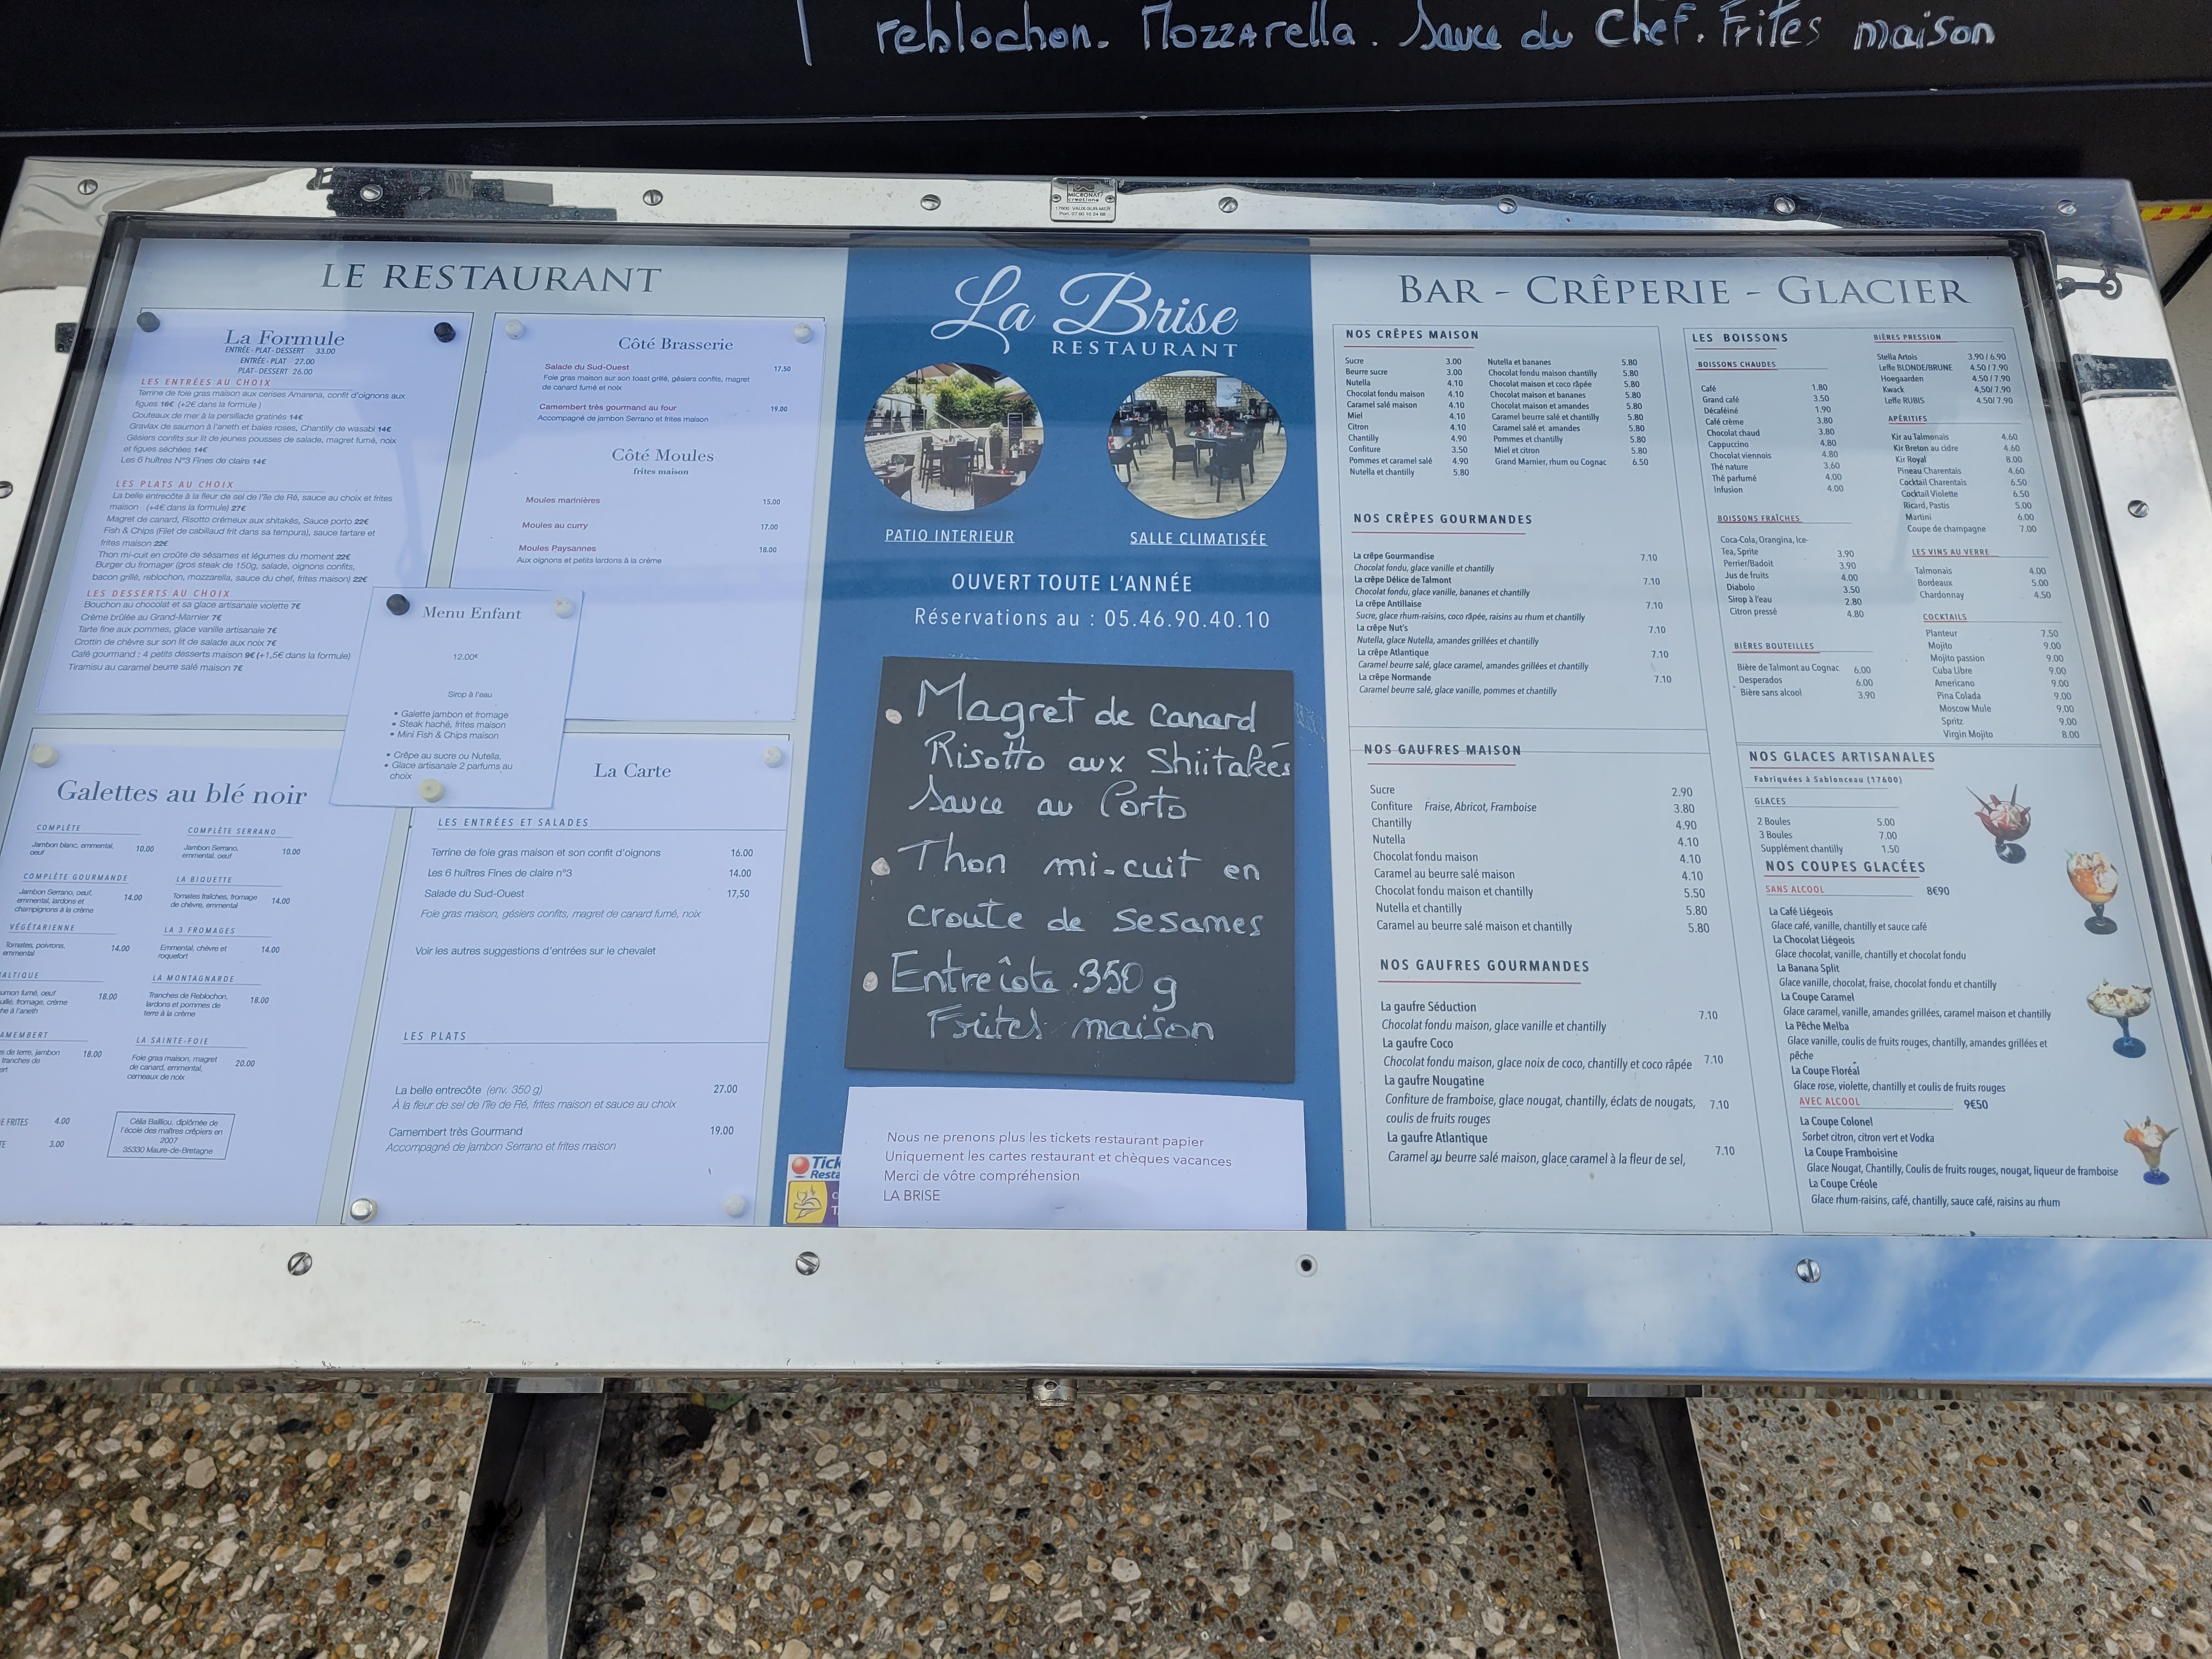 reblochon. Mozzarella. Sauce du Chef. Frites maison
MICRONAT
créations
17600 VAUX-SUR-MER
LE RESTAURANT
La Formule
ENTRÉE - PLAT - DESSERT 33.00
ENTRÉE - PLAT 27.00
PLAT - DESSERT 26.00
LES ENTRÉES AU CHOIX
Terrine de foie gras maison aux cerises Amarena, confit d'oignons aux
figues 16€ (+2€ dans la formule )
Couteaux de mer à la persillade gratinés 14€
Gravlax de saumon à l'aneth et baies roses, Chantilly de wasabi 14€
Gésiers confits sur lit de jeunes pousses de salade, magret fumé, noix
et figues séchées 14€
Les 6 huîtres N°3 Fines de claire 14€
LES PLATS AU CHOIX
La belle entrecôte à la fleur de sel de l'île de Ré, sauce au choix et frites
maison (+4€ dans la formule) 27€
Magret de canard, Risotto crémeux aux shitakés, Sauce porto 22€
Fish & Chips (Filet de cabillaud frit dans sa tempura), sauce tartare et
frites maison 22€
Thon mi-cuit en croûte de sésames et légumes du moment 22€
Burger du fromager (gros steak de 150g, salade, oignons confits,
bacon grillé, reblochon, mozzarella, sauce du chef, frites maison) 22€
LES DESSERTS AU CHOIX
Bouchon au chocolat et sa glace artisanale violette 7€
Crème brûlée au Grand-Marnier 7€
Tarte fine aux pommes, glace vanille artisanale 7€
Crottin de chèvre sur son lit de salade aux noix 7€
Café gourmand : 4 petits desserts maison 9€ (+1,5€ dans la formule)
Tiramisu au caramel beurre salé maison 7€
Côté Brasserie
Salade du Sud-Ouest 17.50
Foie gras maison sur son toast grillé, gésiers confits, magret
de canard fumé et noix
Camembert très gourmand au four 19.00
Accompagné de jambon Serrano et frites maison
Côté Moules
frites maison
Moules marinières 15.00
Moules au curry 17.00
Moules Paysannes 18.00
Aux oignons et petits lardons à la crème
Menu Enfant
12.00€
Sirop à l'eau
• Galette jambon et fromage
• Steak haché, frites maison
• Mini Fish & Chips maison
• Crêpe au sucre ou Nutella,
• Glace artisanale 2 parfums au
choix
Galettes au blé noir
COMPLÈTE
Jambon blanc, emmental, 10.00
oeuf
COMPLÈTE SERRANO
Jambon Serrano, 10.00
emmental, oeuf
COMPLÈTE GOURMANDE
Jambon Serrano, oeuf, 14.00
emmental, lardons et
champignons à la crème
LA BIQUETTE
Tomates fraîches, fromage 14.00
de chèvre, emmental
VÉGÉTARIENNE
Tomates, poivrons, 14.00
emmental
LA 3 FROMAGES
Emmental, chèvre et 14.00
roquefort
ALTIQUE
umon fumé, oeuf 18.00
fromage, crème
à l'aneth
LA MONTAGNARDE
Tranches de Reblochon, 18.00
lardons et pommes de
terre à la crème
AMEMBERT
de terre, jambon 18.00
tranches de
LA SAINTE-FOIE
Foie gras maison, magret 20.00
de canard, emmental,
cerneaux de noix
E FRITES 4.00
TE 3.00
Célia Bailliou, diplômée de
l'école des maîtres crêpiers en
2007
35330 Maure-de-Bretagne
La Carte
LES ENTRÉES ET SALADES
Terrine de foie gras maison et son confit d'oignons 16.00
Les 6 huîtres Fines de claire n°3 14.00
Salade du Sud-Ouest 17,50
Foie gras maison, gésiers confits, magret de canard fumé, noix
Voir les autres suggestions d'entrées sur le chevalet
LES PLATS
La belle entrecôte (env. 350 g) 27.00
À la fleur de sel de l'île de Ré, frites maison et sauce au choix
Camembert très Gourmand 19.00
Accompagné de jambon Serrano et frites maison
La Brise
RESTAURANT
PATIO INTERIEUR
SALLE CLIMATISÉE
OUVERT TOUTE L'ANNÉE
Réservations au : 05.46.90.40.10
Magret de canard
Risotto aux Shiitakés
Sauce au Porto
Thon mi-cuit en
croute de sesames
Entrecôte .350 g
Frites maison
Tick
Resta
Nous ne prenons plus les tickets restaurant papier
Uniquement les cartes restaurant et chèques vacances
Merci de vôtre compréhension
LA BRISE
BAR - CRÊPERIE - GLACIER
NOS CRÊPES MAISON
Sucre 3.00
Beurre sucre 3.00
Nutella 4.10
Chocolat fondu maison 4.10
Caramel salé maison 4.10
Miel 4.10
Citron 4.10
Chantilly 4.90
Confiture 3.50
Pommes et caramel salé 4.90
Nutella et chantilly 5.80
Nutella et bananes 5.80
Chocolat fondu maison chantilly 5.80
Chocolat maison et coco râpée 5.80
Chocolat maison et bananes 5.80
Chocolat maison et amandes 5.80
Caramel beurre salé et chantilly 5.80
Caramel salé et amandes 5.80
Pommes et chantilly 5.80
Miel et citron 5.80
Grand Marnier, rhum ou Cognac 6.50
NOS CRÊPES GOURMANDES
La crêpe Gourmandise 7.10
Chocolat fondu, glace vanille et chantilly
La crêpe Délice de Talmont 7.10
Chocolat fondu, glace vanille, bananes et chantilly
La crêpe Antillaise 7.10
Sucre, glace rhum-raisins, coco râpée, raisins au rhum et chantilly
La crêpe Nut's 7.10
Nutella, glace Nutella, amandes grillées et chantilly
La crêpe Atlantique 7.10
Caramel beurre salé, glace caramel, amandes grillées et chantilly
La crêpe Normande 7.10
Caramel beurre salé, glace vanille, pommes et chantilly
NOS GAUFRES MAISON
Sucre 2.90
Confiture Fraise, Abricot, Framboise 3.80
Chantilly 4.90
Nutella 4.10
Chocolat fondu maison 4.10
Caramel au beurre salé maison 4.10
Chocolat fondu maison et chantilly 5.50
Nutella et chantilly 5.80
Caramel au beurre salé maison et chantilly 5.80
NOS GAUFRES GOURMANDES
La gaufre Séduction 7.10
Chocolat fondu maison, glace vanille et chantilly
La gaufre Coco
Chocolat fondu maison, glace noix de coco, chantilly et coco râpée 7.10
La gaufre Nougatine
Confiture de framboise, glace nougat, chantilly, éclats de nougats, 7.10
coulis de fruits rouges
La gaufre Atlantique
Caramel au beurre salé maison, glace caramel à la fleur de sel, 7.10
LES BOISSONS
BOISSONS CHAUDES
Café 1.80
Grand café 3.50
Décaféiné 1.90
Café crème 3.80
Chocolat chaud 3.80
Cappuccino 4.80
Chocolat viennois 4.80
Thé nature 3.60
Thé parfumé 4.00
Infusion 4.00
BOISSONS FRAÎCHES
Coca-Cola, Orangina, Ice-
Tea, Sprite 3.90
Perrier/Badoit 3.90
Jus de fruits 4.00
Diabolo 3.50
Sirop à l'eau 2.80
Citron pressé 4.80
BIÈRES BOUTEILLES
Bière de Talmont au Cognac 6.00
Desperados 6.00
Bière sans alcool 3.90
BIÈRES PRESSION
Stella Artois 3.90 / 6.90
Leffe BLONDE/BRUNE 4.50 / 7.90
Hoegaarden 4.50 / 7.90
Kwack 4.50/ 7.90
Leffe RUBIS 4.50/ 7.90
APÉRITIFS
Kir au Talmonais 4.60
Kir Breton au cidre 4.60
Kir Royal 8.00
Pineau Charentais 4.60
Cocktail Charentais 6.50
Cocktail Violette 6.50
Ricard, Pastis 5.00
Martini 6.00
Coupe de champagne 7.00
LES VINS AU VERRE
Talmonais 4.00
Bordeaux 5.00
Chardonnay 4.50
COCKTAILS
Planteur 7.50
Mojito 9.00
Mojito passion 9.00
Cuba Libre 9.00
Americano 9.00
Pina Colada 9.00
Moscow Mule 9.00
Spritz 9.00
Virgin Mojito 8.00
NOS GLACES ARTISANALES
Fabriquées à Sablonceau (17600)
GLACES
2 Boules 5.00
3 Boules 7.00
Supplément chantilly 1.50
NOS COUPES GLACÉES
SANS ALCOOL 8€90
La Café Liégeois
Glace café, vanille, chantilly et sauce café
La Chocolat Liégeois
Glace chocolat, vanille, chantilly et chocolat fondu
La Banana Split
Glace vanille, chocolat, fraise, chocolat fondu et chantilly
La Coupe Caramel
Glace caramel, vanille, amandes grillées, caramel maison et chantilly
La Pêche Melba
Glace vanille, coulis de fruits rouges, chantilly, amandes grillées et
pêche
La Coupe Floréal
Glace rose, violette, chantilly et coulis de fruits rouges
AVEC ALCOOL 9€50
La Coupe Colonel
Sorbet citron, citron vert et Vodka
La Coupe Framboisine
Glace Nougat, Chantilly, Coulis de fruits rouges, nougat, liqueur de framboise
La Coupe Créole
Glace rhum-raisins, café, chantilly, sauce café, raisins au rhum